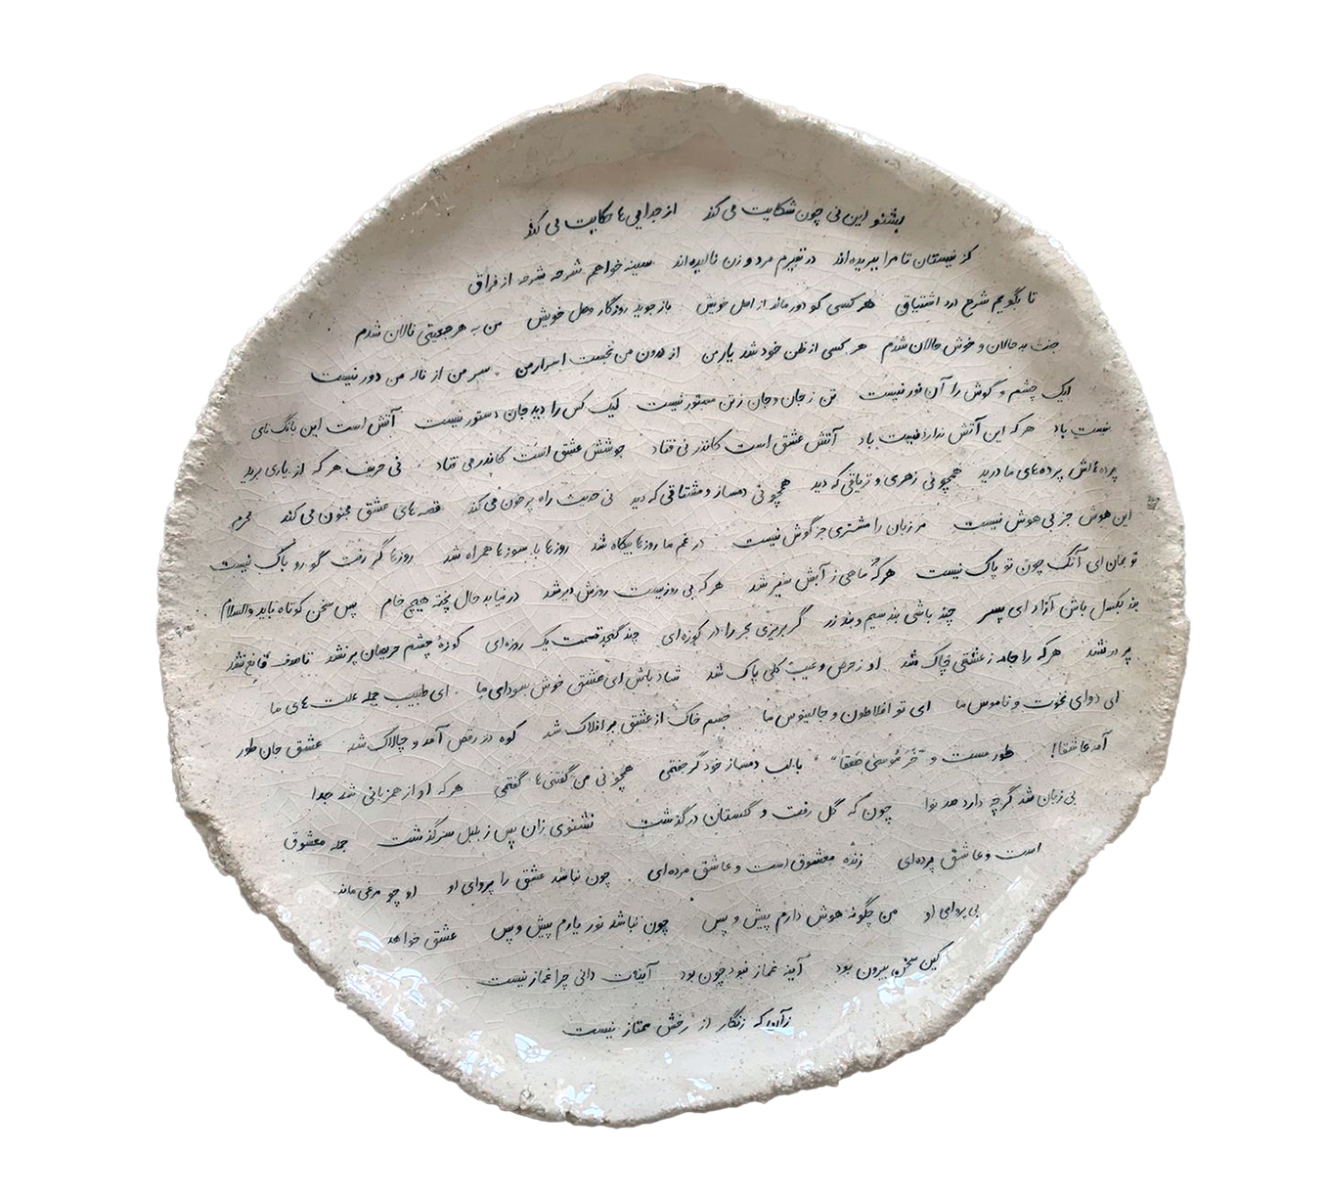 بشنو این نی چون شکایت می کند از جدایی ها حکایت می کند
کز نیستان تا مرا ببریده اند در نفیرم مرد و زن نالیده اند سینه خواهم شرحه شرحه از فراق
تا بگویم شرح درد اشتیاق هر کسی کو دور ماند از اصل خویش باز جوید روزگار وصل خویش من به هر جمعیتی نالان شدم
جفت بد حالان و خوش حالان شدم هر کسی از ظن خود شد یار من از درون من نجست اسرار من سر من از ناله من دور نیست
لیک چشم و گوش را آن نور نیست تن ز جان و جان ز تن مستور نیست لیک کس را دید جان دستور نیست آتش است این بانگ نای
نیست باد هر که این آتش ندارد نیست باد آتش عشق است کاندر نی فتاد جوشش عشق است کاندر می فتاد نی حریف هر که از یاری برید
پرده هاش پرده های ما درید همچو نی زهری و تریاقی که دید همچو نی دمساز و مشتاقی که دید نی حدیث راه پر خون می کند قصه های عشق مجنون می کند محرم
این هوش جز بی هوش نیست مر زبان را مشتری جز گوش نیست در غم ما روزها بیگاه شد روزها با سوزها همراه شد روزها گر رفت گو رو باک نیست
تو بمان ای آنک چون تو پاک نیست هر که ماهی ز آبش سیر شد هر که بی روزیست روزش دیر شد در نیابد حال پخته هیچ خام پس سخن کوتاه باید والسلام
بند بگسل باش آزاد ای پسر چند باشی بند سیم و بند زر گر بریزی بحر را در کوزه ای چند گنجد قسمت یک روزه ای کوزه چشم حریصان پر نشد تا صدف قانع نشد
پر در نشد هر که را جامه ز عشقی چاک شد او ز حرص و عیب کلی پاک شد شاد باش ای عشق خوش سودای ما ای طبیب جمله علت های ما
ای دوای نخوت و ناموس ما ای تو افلاطون و جالینوس ما جسم خاک از عشق بر افلاک شد کوه در رقص آمد و چالاک شد عشق جان طور
آمد عاشقا! طور مست و "خَرَّ مُوسی صَعِقا" با لب دمساز خود گر جفتمی همچو نی من گفتنی ها گفتمی هر که او از همزبانی شد جدا
بی زبان شد گرچه دارد صد نوا چون که گل رفت و گلستان در گذشت نشنوی زان پس ز بلبل سرگذشت جمله معشوق
است و عاشق پرده ای زنده معشوق است و عاشق مرده ای چون نباشد عشق را پروای او او چو مرغی ماند
بی پروای او من چگونه هوش دارم پیش و پس چون نباشد نور یارم پیش و پس عشق خواهد
کین سخن بیرون بود آینه غماز نبود چون بود آینت دانی چرا غماز نیست
زآن که زنگار از رخش ممتاز نیست